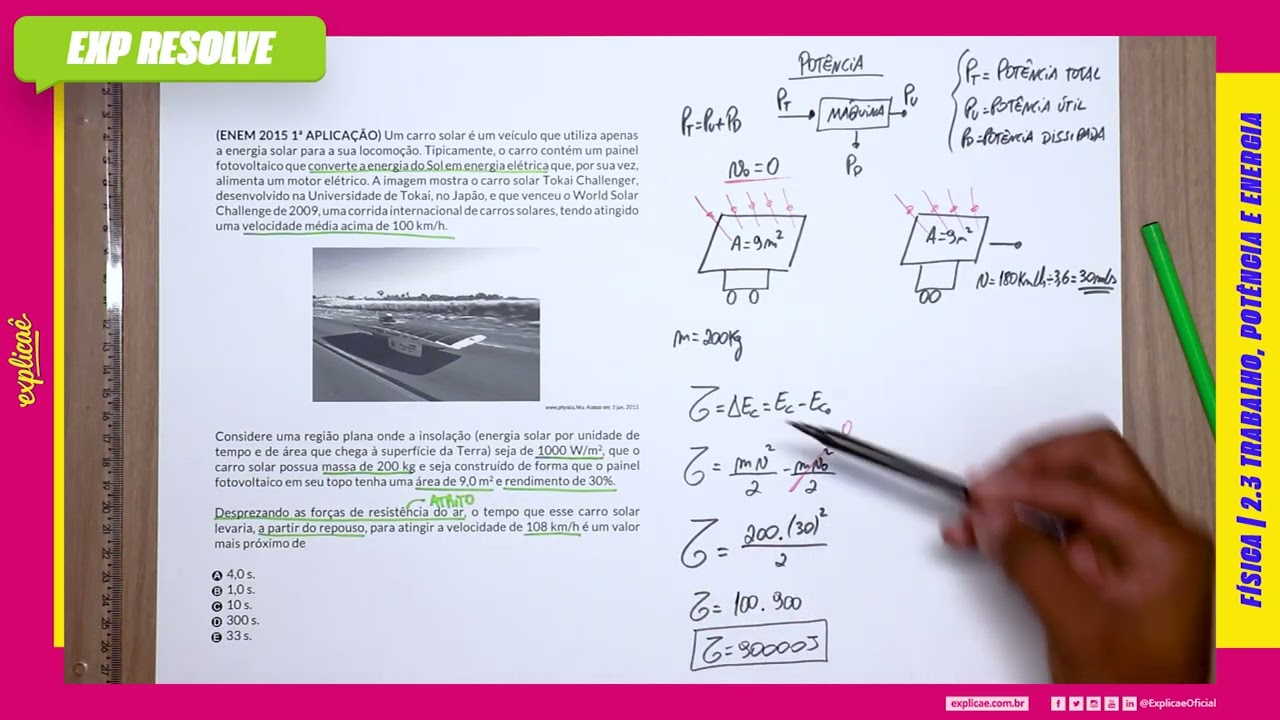 EXP RESOLVE
(ENEM 2015 1ª APLICAÇÃO) Um carro solar é um veículo que utiliza apenas
a energia solar para a sua locomoção. Tipicamente, o carro contém um painel
fotovoltaico que converte a energia do Sol em energia elétrica que, por sua vez,
alimenta um motor elétrico. A imagem mostra o carro solar Tokai Challenger,
desenvolvido na Universidade de Tokai, no Japão, e que venceu o World Solar
Challenge de 2009, uma corrida internacional de carros solares, tendo atingido
uma velocidade média acima de 100 km/h.
Acesso em: 3 jun. 2013.
Considere uma região plana onde a insolação (energia solar por unidade de
tempo e de área que chega à superfície da Terra) seja de 1000 W/m², que o
carro solar possua massa de 200 kg e seja construído de forma que o painel
fotovoltaico em seu topo tenha uma área de 9,0 m² e rendimento de 30%.
ATRITO
Desprezando as forças de resistência do ar, o tempo que esse carro solar
levaria, a partir do repouso, para atingir a velocidade de 108 km/h é um valor
mais próximo de
A 4,0 s.
B 1,0 s.
C 10 s.
D 300 s.
E 33 s.
POTÊNCIA
PT=PU+PD
PT
MÁQUINA
PU
PD
PT= POTÊNCIA TOTAL
PU=POTÊNCIA ÚTIL
PD=POTÊNCIA DISSIPADA
v₀=0
A=9m²
A=9m²
v=180Km/h÷3,6=30m/s
m=200Kg
τ=ΔEc=Ec-Ec₀
τ = mv²/2 - mv₀²/2
0
τ = 200.(30)²/2
τ= 100.900
τ=90000J
explicaê
FÍSICA | 2.3 TRABALHO, POTÊNCIA E ENERGIA
explicae.com.br
@ExplicaeOficial